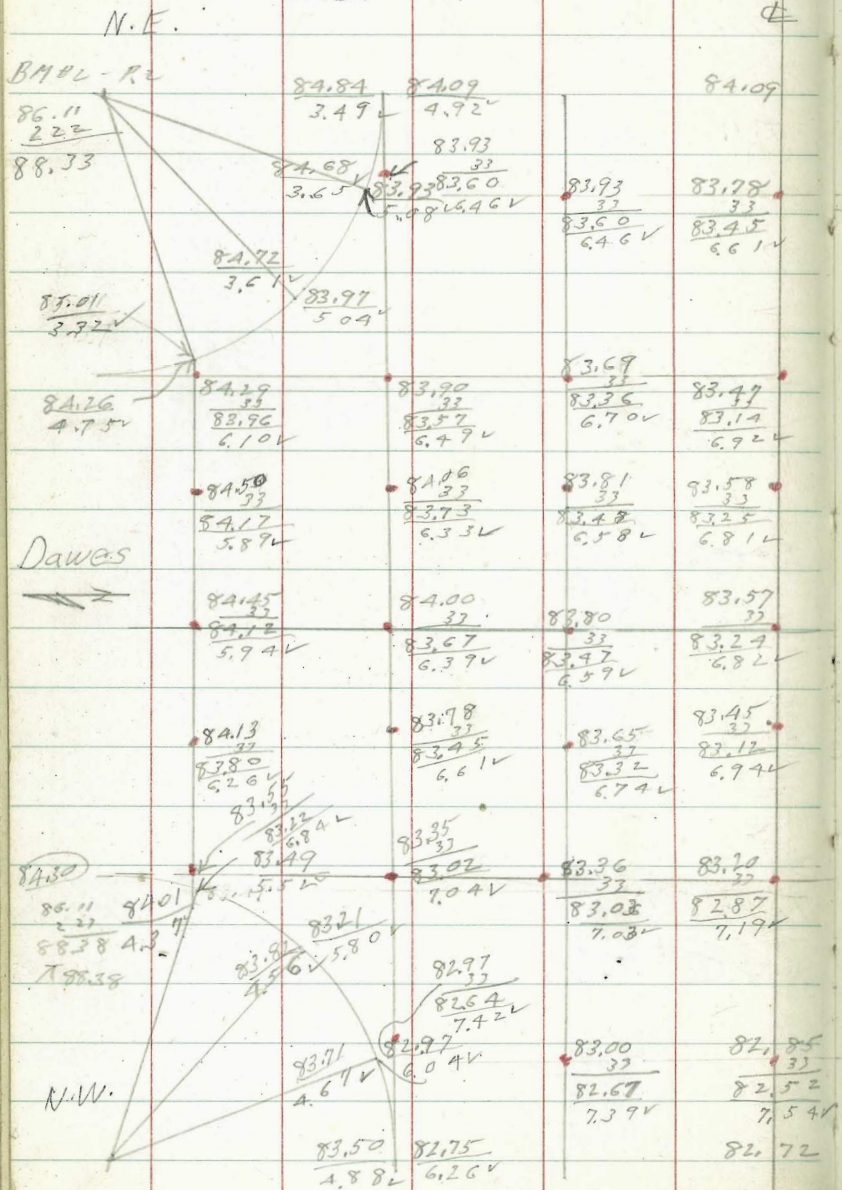 N.E.
℄
BM#2 - P.2
86.11
222
88.33
84.84
3.49 ✓
84.09
4.92 ✓
84.09
84.68
3.65 ✓
83.93
5.08 ✓
83.93
33
83.60
6.46 ✓
83.93
33
83.60
6.46 ✓
83.78
33
83.45
6.61 ✓
84.72
3.61 ✓
83.97
5.04 ✓
85.01
3.32 ✓
84.26
4.75 ✓
84.29
33
83.96
6.10 ✓
83.90
33
83.57
6.49 ✓
83.69
33
83.36
6.70 ✓
83.47
33
83.14
6.92 ✓
84.50
33
84.17
5.89 ✓
84.06
33
83.73
6.33 ✓
83.81
33
83.48
6.58 ✓
83.58
33
83.25
6.81 ✓
Dawes
84.45
33
84.12
5.94 ✓
84.00
33
83.67
6.39 ✓
83.80
33
83.47
6.59 ✓
83.57
33
83.24
6.82 ✓
84.13
33
83.80
6.26 ✓
83.78
33
83.45
6.61 ✓
83.65
33
83.32
6.74 ✓
83.45
33
83.12
6.94 ✓
83.55
33
83.22
6.84 ✓
84.30
83.49
83.35
33
83.02
7.04 ✓
83.36
33
83.03
7.03 ✓
83.20
33
82.87
7.19 ✓
86.11
88.38
84.01
π 88.38
83.21
5.80 ✓
82.97
33
82.64
7.42 ✓
82.97
6.04 ✓
83.71
4.67 ✓
83.00
33
82.67
7.39 ✓
82.85
33
82.52
7.54 ✓
N.W.
83.50
4.88 ✓
82.75
6.26 ✓
82.72